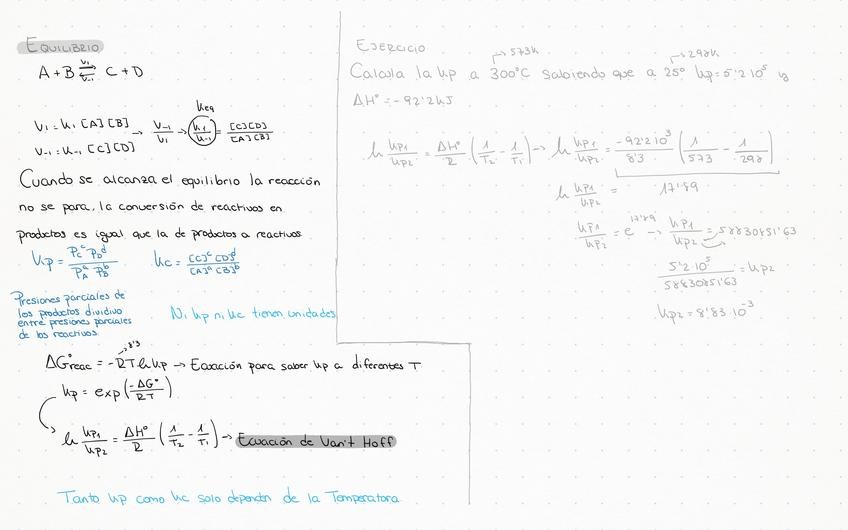 EQUILIBRIO
A + B ⇌ C + D
V₁
V₋₁
V₁ = K₁ [A][B] → V₋₁/V₁ → K₁/K₋₁ = [C][D]/[A][B]
Keq
V₋₁ = K₋₁ [C][D]
Cuando se alcanza el equilibrio la reacción
no se para, la conversión de reactivos en
productos es igual que la de productos a reactivos
Kp = Pc^c PD^d / PA^a PB^b
Kc = [C]^c [D]^d / [A]^a [B]^b
Presiones parciales de
los productos dividivo
entre presiones parciales
de los reactivos.
Ni Kp ni Kc tienen unidades
8'3
ΔG°reac = -RT ln Kp → Ecuación para saber Kp a diferentes T
Kp = exp(-ΔG°/RT)
ln Kp₁/Kp₂ = ΔH°/R (1/T₂ - 1/T₁) → Ecuación de Van't Hoff
Tanto Kp como Kc solo dependen de la Temperatura
EJERCICIO
573K
298K
Calcula la Kp a 300°C sabiendo que a 25° Kp = 5'2 10⁵ y
ΔH° = -92'2 kJ
ln Kp₁/Kp₂ = ΔH°/R (1/T₂ - 1/T₁) → ln Kp₁/Kp₂ = -92'2 10³/8'3 (1/573 - 1/298)
ln Kp₁/Kp₂ = 17'89
Kp₁/Kp₂ = e^17'89 → Kp₁/Kp₂ = 58830851'63
5'2 10⁵/58830851'63 = Kp₂
Kp₂ = 8'83 10⁻³